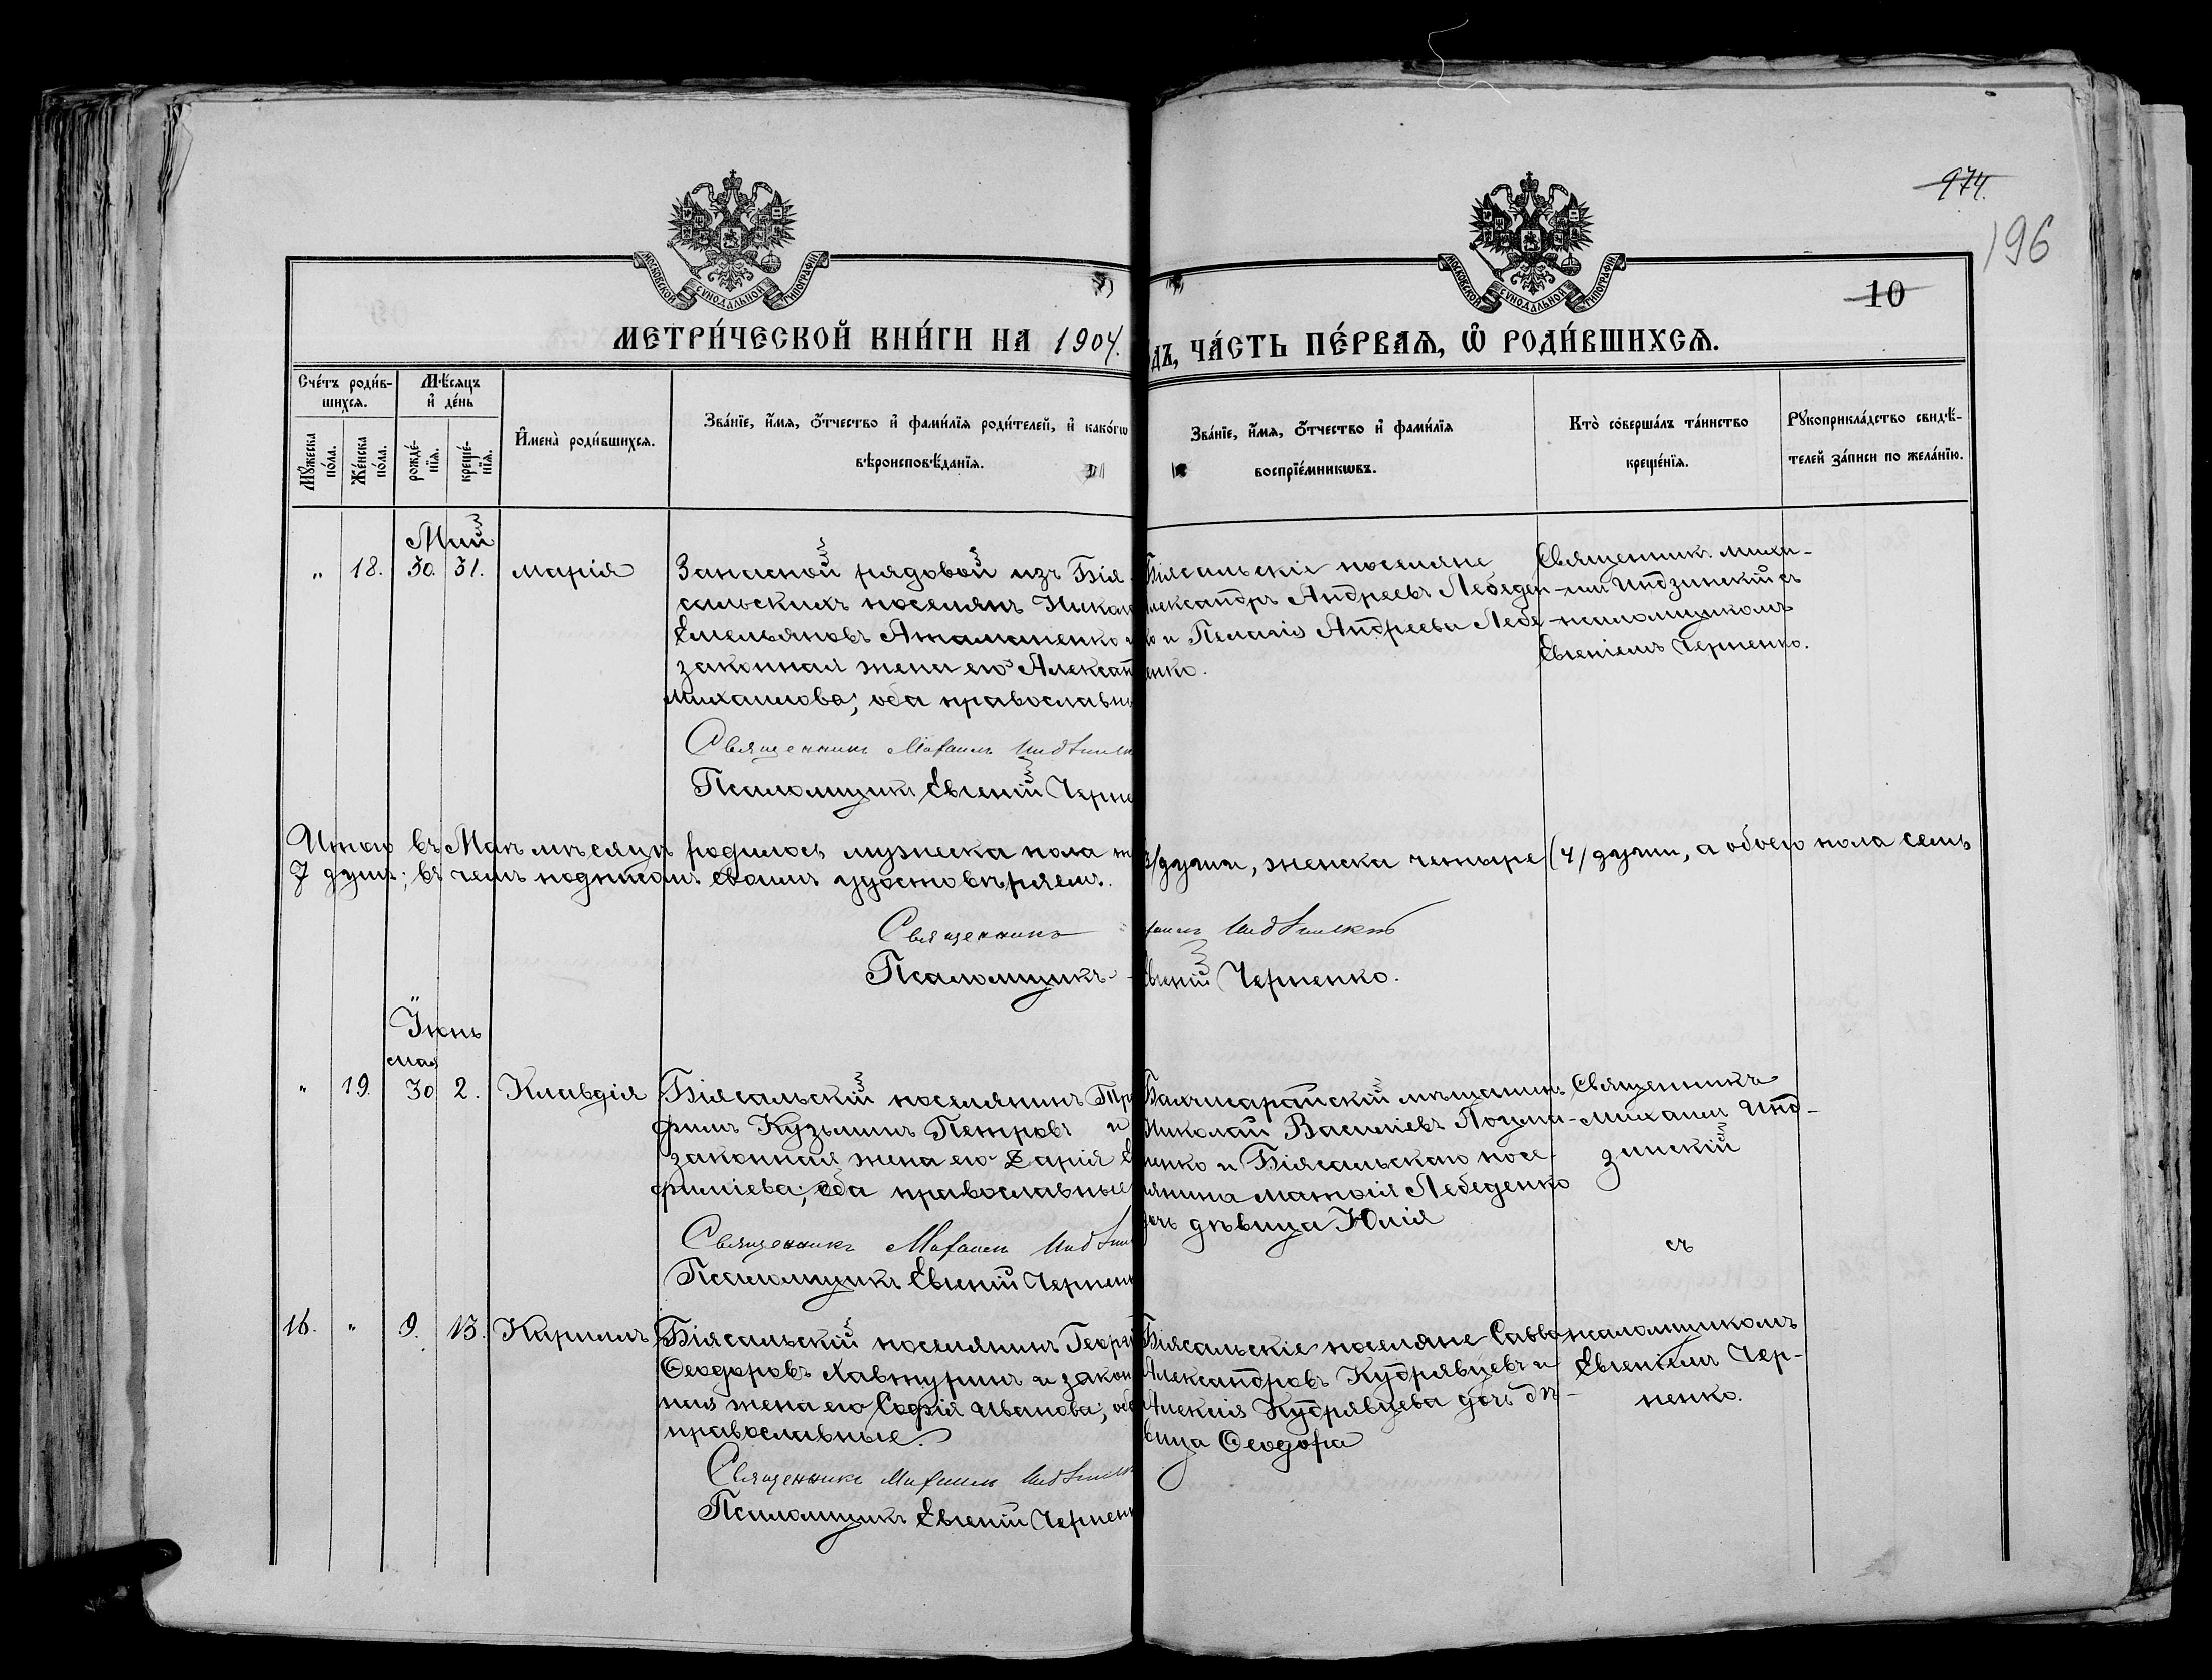 974.
196
10
МОСКОВСКОЙ СѴНОДАЛЬНОЙ ТИПОГРАФІИ
МОСКОВСКОЙ СѴНОДАЛЬНОЙ ТИПОГРАФІИ
МЕТРИ́ЧЕСКОЙ КНИ́ГИ НА 1904.
ДЪ, ЧА́СТЬ ПЕ́РВАѦ, Ѡ РОДИ́ВШИХСѦ.
Сче́тъ роди́в-
шихсѧ.
Мꙋ́жеска
по́ла.
Же́нска
по́ла.
Мѣ́сѧцъ
и҆ де́нь
рожде́-
нїѧ.
креще́-
нїѧ.
И҆мена̀ роди́вшихсѧ.
Зва́нїе, и҆́мѧ, ѻ҆́тчество и҆ фами́лїѧ роди́телей, и҆ како́гѡ
вѣроисповѣ́данїѧ.
Зва́нїе, и҆́мѧ, ѻ҆́тчество и҆ фами́лїѧ
воспрїе́мникѡвъ.
Кто̀ соверша́лъ та́инство
креще́нїѧ.
Рꙋкоприкла́дство свидѣ́-
телей за́писи по жела́нїю.
Май
„ 18. 30. 31. Марія
Запасной рядовой изъ Бія-
сальскихъ поселянъ Никола
Емельяновъ Атаманенко и
законная жена его Алексан
Михаилова; оба православн
Священникъ Михаилъ Индзинск
Псаломщикъ Евгеній Черне
Біясальскіе поселяне
лександръ Андреевъ Лебеден
ко и Пелагія Андреева Лебе
енко.
Священник. Миха-
илъ Индзинскій съ
псаломщикомъ
Евгеніемъ Черненко.
Итого въ Маѣ мѣсяцѣ родилось мужеска пола т 3/души, женска четыре (4/ души, а обоего пола семь
7 душъ; въ чемъ подписомъ своимъ удостовѣряемъ.
Священникъ хаилъ Индзинскій
Псаломщикъ Евгеній Черненко.
Іюнь
мая
„ 19. 30 2. Клавдія
Біясальскій поселянинъ Тр
фимъ Кузьминъ Петровъ и
законная жена его Дарія Е
фиміева; оба православные
Священникъ Михаилъ Индзин
Псаломщикъ Евгеній Чернен
Бахчисарайскій мѣщанинъ
Николай Василіевъ Логви-
ненко и Біясальскаго посе-
лянина Матѳія Лебеденко
дочь дѣвица Юлія
Священникъ
Михаилъ Инд-
зинскій
съ
16. „ 9. 13. Кириллъ
Біясальскій поселянинъ Георгі
Ѳеодоровъ Хавтуринъ и закон
ная жена его Софія Иванова; об
православные.
Священникъ Михаилъ Индзинск
Псаломщикъ Евгеній Чернен
Біясальскіе поселяне Савва
Александровъ Кудрявцевъ и
Алексія Кудрявцева дочь дѣ-
вица Ѳеодора
псаломщикомъ
Евгеніемъ Чер-
ненко.